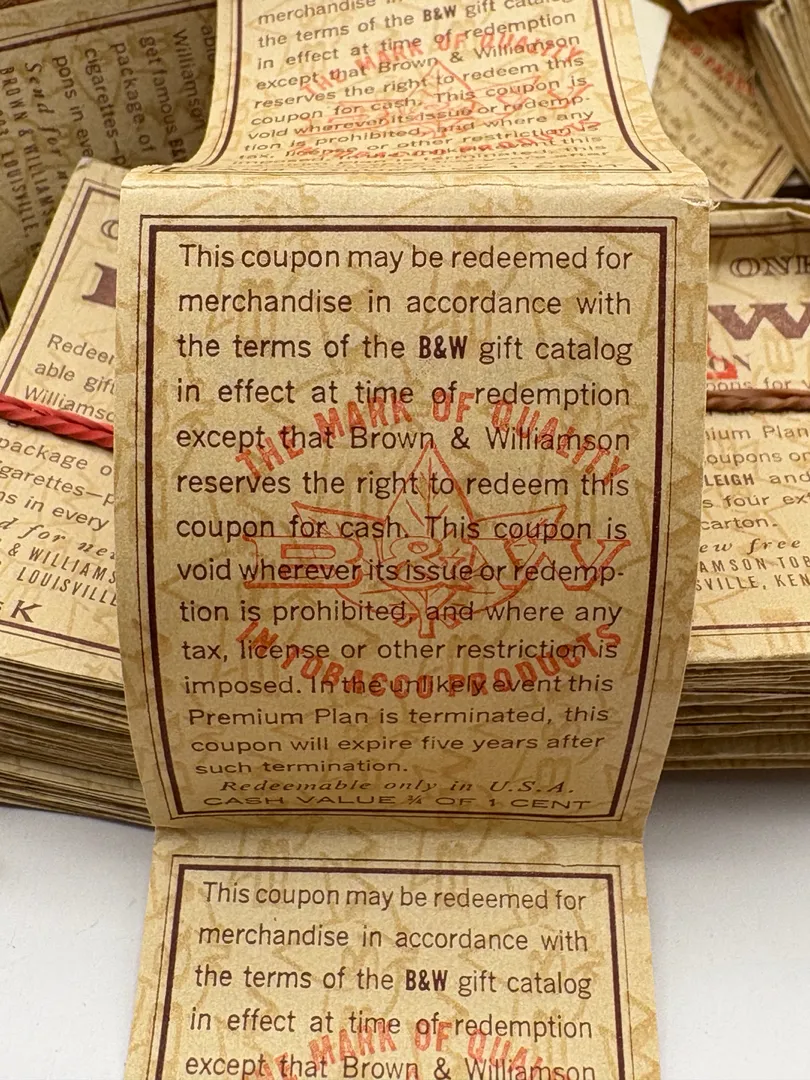 merchandise in
the terms of the B&W gift
in effect at time of redemption
except that Brown & Williamson
reserves the right to redeem this
coupon for cash. This coupon is
void wherever its issue or redemp-
tion is prohibited, and where any
tax, license or other restriction is
THE MARK OF QUALITY
This coupon may be redeemed for
merchandise in accordance with
the terms of the B&W gift catalog
in effect at time of redemption
except that Brown & Williamson
reserves the right to redeem this
coupon for cash. This coupon is
void wherever its issue or redemp-
tion is prohibited, and where any
tax, license or other restriction is
imposed. In the unlikely event this
Premium Plan is terminated, this
coupon will expire five years after
such termination.
Redeemable only in U.S.A.
CASH VALUE ¾ OF 1 CENT
THE MARK OF QUALITY
B&W
IN TOBACCO PRODUCTS
This coupon may be redeemed for
merchandise in accordance with
the terms of the B&W gift catalog
in effect at time of redemption
except that Brown & Williamson
THE MARK OF QUALITY
Williams
get famous
package of
cigarettes—
pons in
Send for
BROWN & WILLIAMS
LOUISVILLE,
able gift
package
in every
for
& WILLIAMS
LOUISVILLE
K
W
for
Plan
coupons
LEIGH and
four
carton.
free
SVILLE, KEN